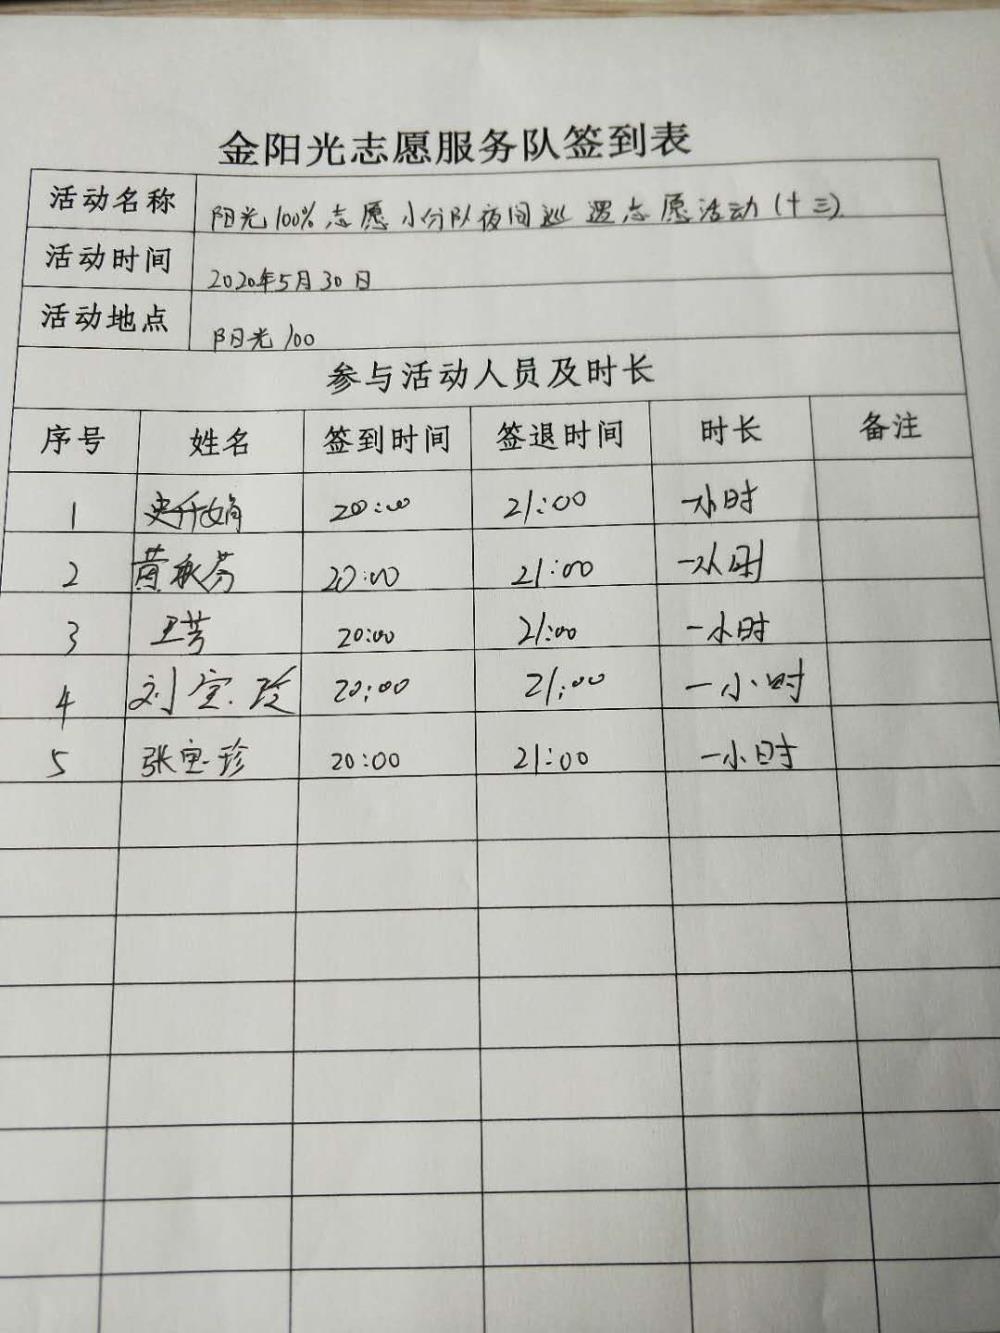 金阳光志愿服务队签到表
活动名称 阳光100%志愿小分队夜间巡逻志愿活动(十三)
活动时间 2020年5月30日
活动地点 阳光100
参与活动人员及时长
序号 姓名 签到时间 签退时间 时长 备注
1 20:00 21:00 一小时
2 黄 20:00 21:00 一小时
3 20:00 21:00 一小时
4 刘宝珍 20:00 21:00 一小时
5 张宝珍 20:00 21:00 一小时